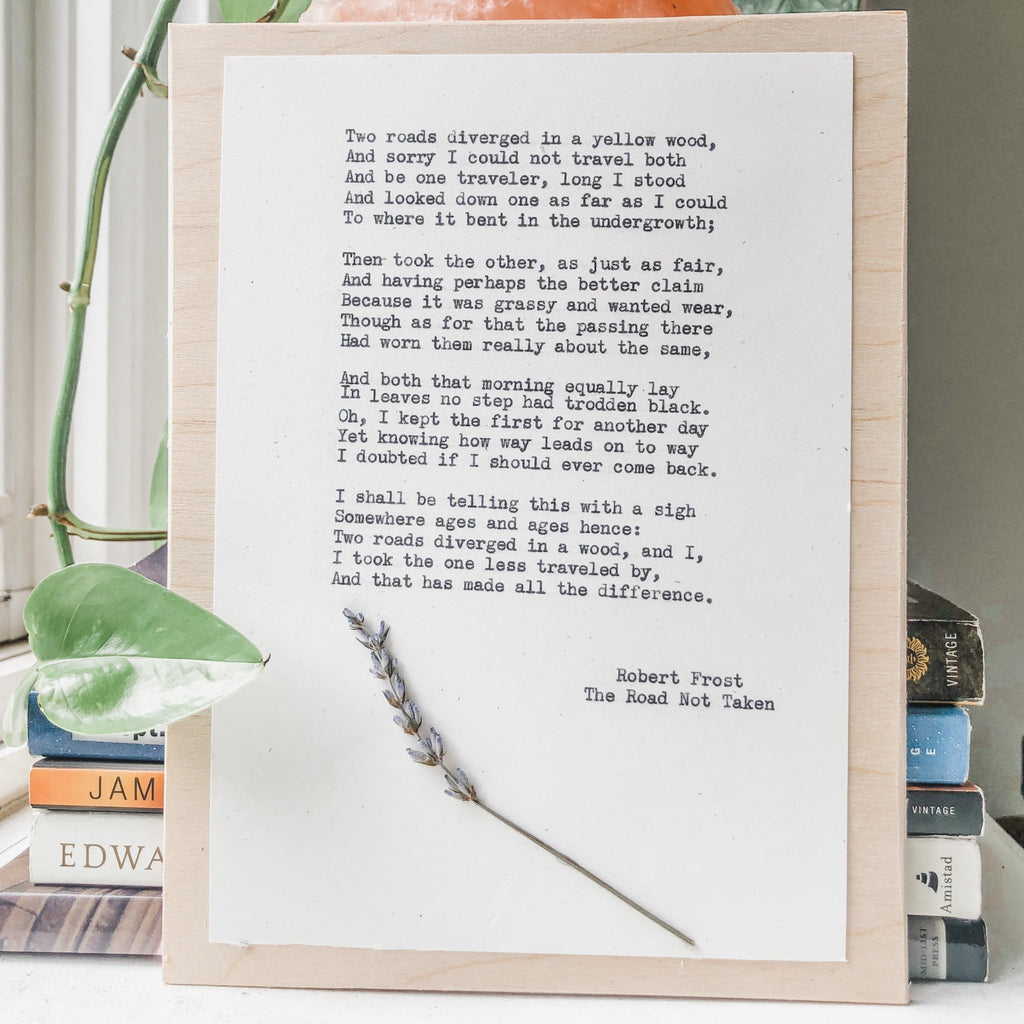 Two roads diverged in a yellow wood,
And sorry I could not travel both
And be one traveler, long I stood
And looked down one as far as I could
To where it bent in the undergrowth;
Then took the other, as just as fair,
And having perhaps the better claim
Because it was grassy and wanted wear,
Though as for that the passing there
Had worn them really about the same,
And both that morning equally lay
In leaves no step had trodden black.
Oh, I kept the first for another day
Yet knowing how way leads on to way
I doubted if I should ever come back.
I shall be telling this with a sigh
Somewhere ages and ages hence:
Two roads diverged in a wood, and I,
I took the one less traveled by,
And that has made all the difference.
Robert Frost
The Road Not Taken
JAM
EDWA
VINTAGE
G E
VINTAGE
Amistad
MID-LIST
PRESS